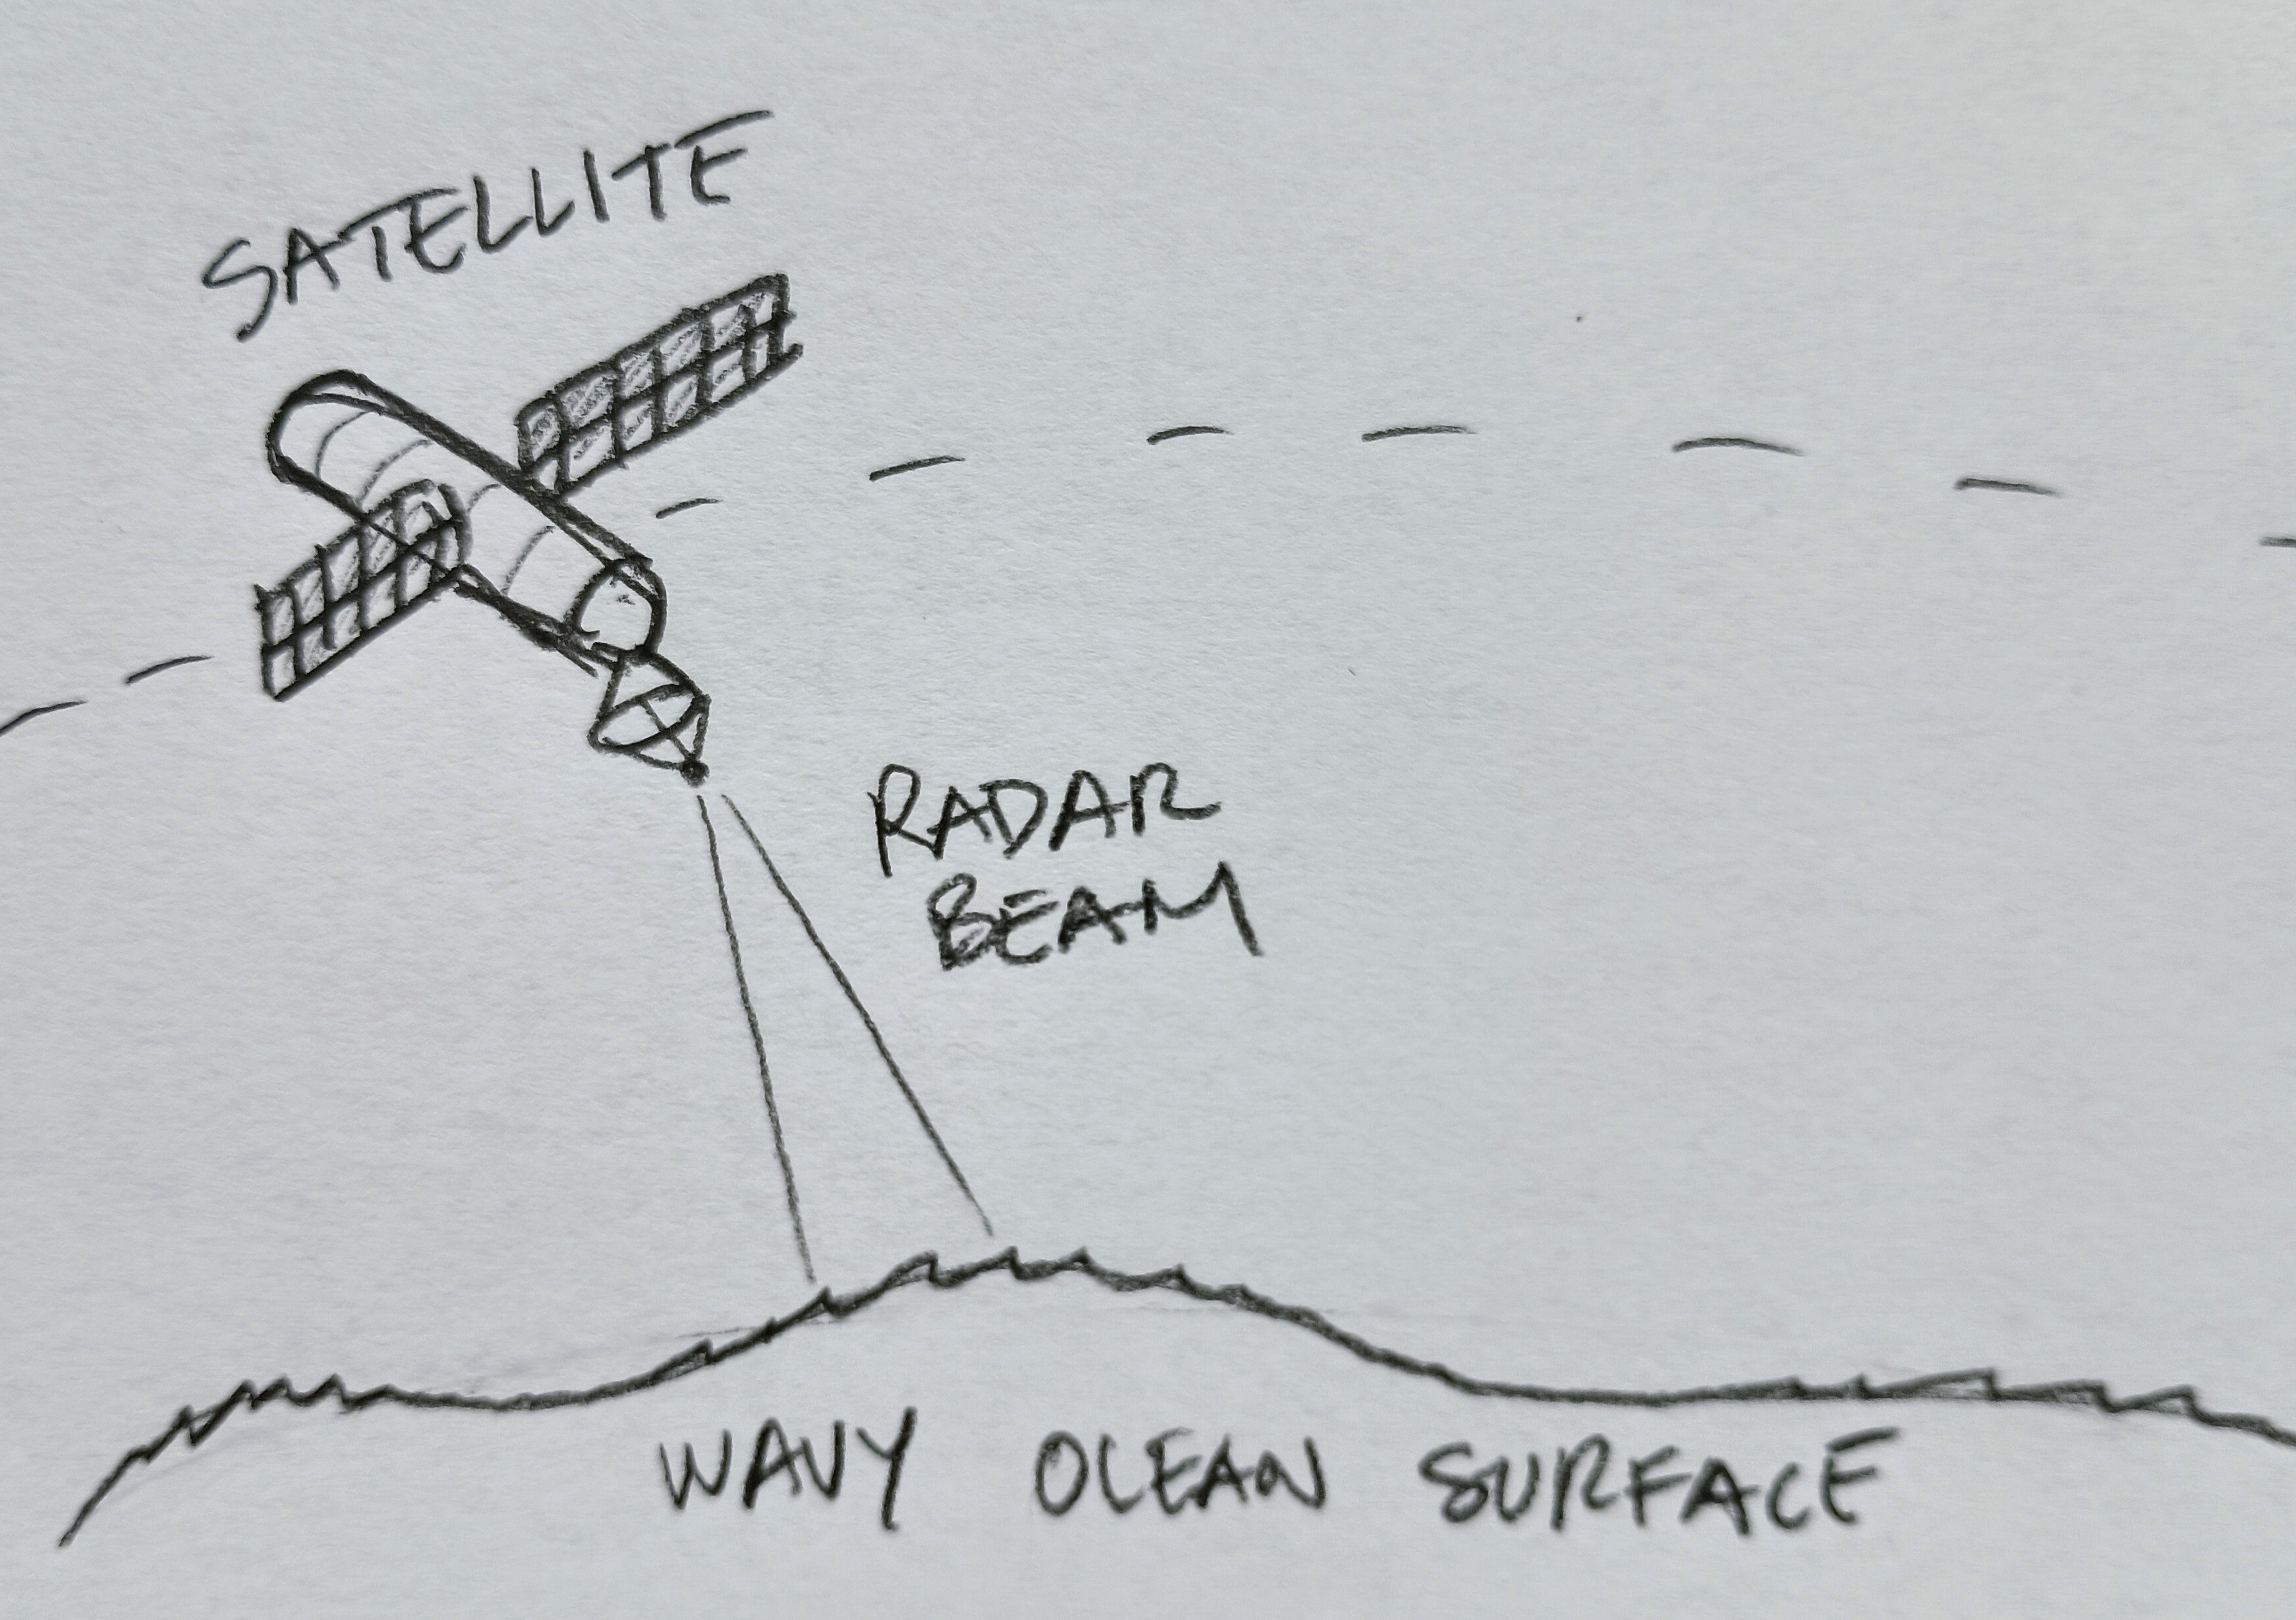 SATELLITE
RADAR
BEAM
WAVY OCEAN SURFACE